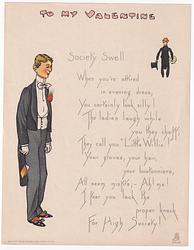 To My Valentine
Society Swell
When you're attired
in evening dress,
You certainly look silly!
The ladies laugh while
you they chaff,
They call you "Little Willie"
Your gloves, your hair,
your boutonniere,
All seem misfits; - Ah! me!
I fear you lack the
proper knack
For High Society!